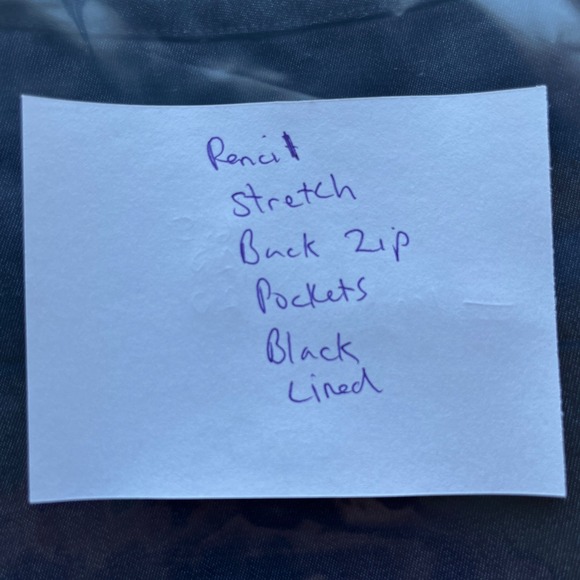 Pencil
Stretch
Back Zip
Pockets
Black
Lined